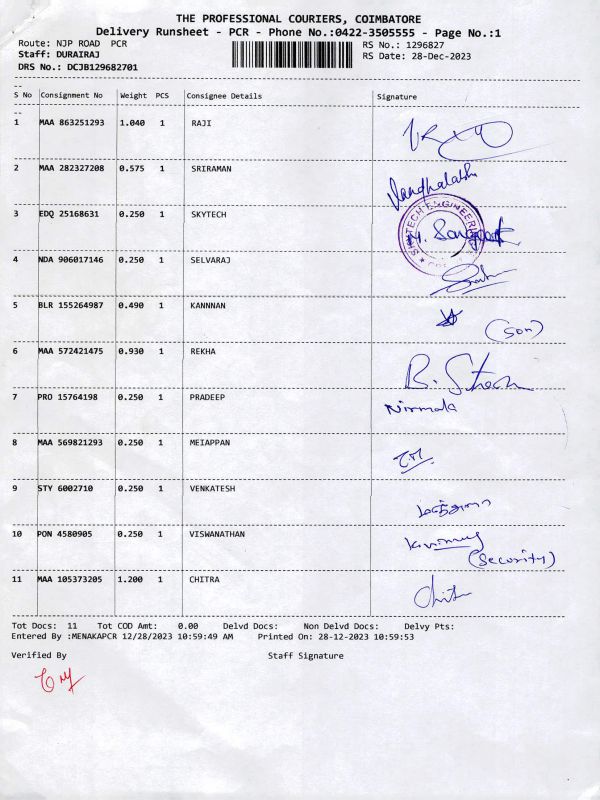 THE PROFESSIONAL COURIERS, COIMBATORE
Delivery Runsheet - PCR - Phone No.:0422-3505555 - Page No.:1
Route: NJP ROAD PCR
RS No.: 1296827
Staff: DURAIRAJ
RS Date: 28-Dec-2023
DRS No.: DCJB129682701
S No Consignment No Weight PCS Consignee Details Signature
1 MAA 863251293 1.040 1 RAJI
2 MAA 282327208 0.575 1 SRIRAMAN
3 EDQ 25168631 0.250 1 SKYTECH
4 NDA 906017146 0.250 1 SELVARAJ
5 BLR 155264987 0.490 1 KANNNAN
(son)
6 MAA 572421475 0.930 1 REKHA
7 PRO 15764198 0.250 1 PRADEEP Nirmala
8 MAA 569821293 0.250 1 MEIAPPAN
9 STY 6002710 0.250 1 VENKATESH
10 PON 4580905 0.250 1 VISWANATHAN
(Security)
11 MAA 105373205 1.200 1 CHITRA Chitra
Tot Docs: 11 Tot COD Amt: 0.00 Delvd Docs: Non Delvd Docs: Delvy Pts:
Entered By :MENAKAPCR 12/28/2023 10:59:49 AM Printed On: 28-12-2023 10:59:53
Verified By Staff Signature